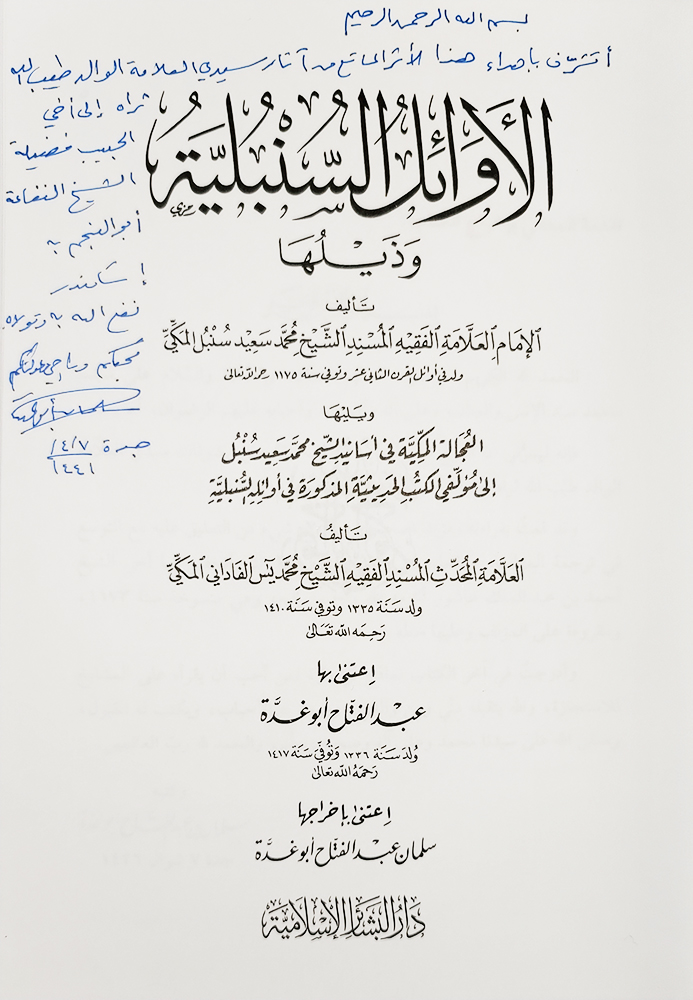 بسم الله الرحمن الرحيم
أتشرف بإهداء هذا الأثر الماتع من آثار سيدي العلامة الوالد طيب الله
ثراه إلى أخي
الحبيب فضيلة
الشيخ النفاعة
أبو النجم
نفع الله به وتولاه
محبكم
جدة ١٤/٧/
١٤٤١
الأَوَائِلُ السُّنْبُلِيَّة
وَذَيْلُهَا
تَأليف
الإمَامِ العَلَّامَةِ الفَقِيهِ المُسْنِدِ الشَّيْخِ مُحَمَّد سَعِيد سُنْبُل المَكِّيّ
ولد في أوائل القرن الثاني عشر وتوفي سنة ١١٧٥ رحمه الله تعالى
ويليها
العُجَالة المكيَّة في أسانيد الشيخ محمد سَعيد سُنْبُل
إلى مُؤلّفي الكتب الحديثيَّة المذكورة في أوائله السُّنبليَّة
تَأليفُ
العَلَّامَةِ المُحَدِّثِ المُسْنِدِ الفَقِيهِ الشَّيْخِ مُحَمَّد يٰسٓ الفَاداني المَكِّيّ
ولد سَنَة ١٣٣٥ وتوفي سَنَة ١٤١٠
رَحِمَه الله تَعَالىٰ
اعتنىٰ بها
عبد الفتّاح أبو غدَّة
وُلدَ سَنَة ١٣٣٦ وَتُوفِّيَ سَنَة ١٤١٧
رَحِمَهُ الله تعالىٰ
اعتنىٰ بإخراجها
سلمان عبد الفتّاح أبو غدَّة
دَارُ البَشَائِر الإِسْلَامِيَّة